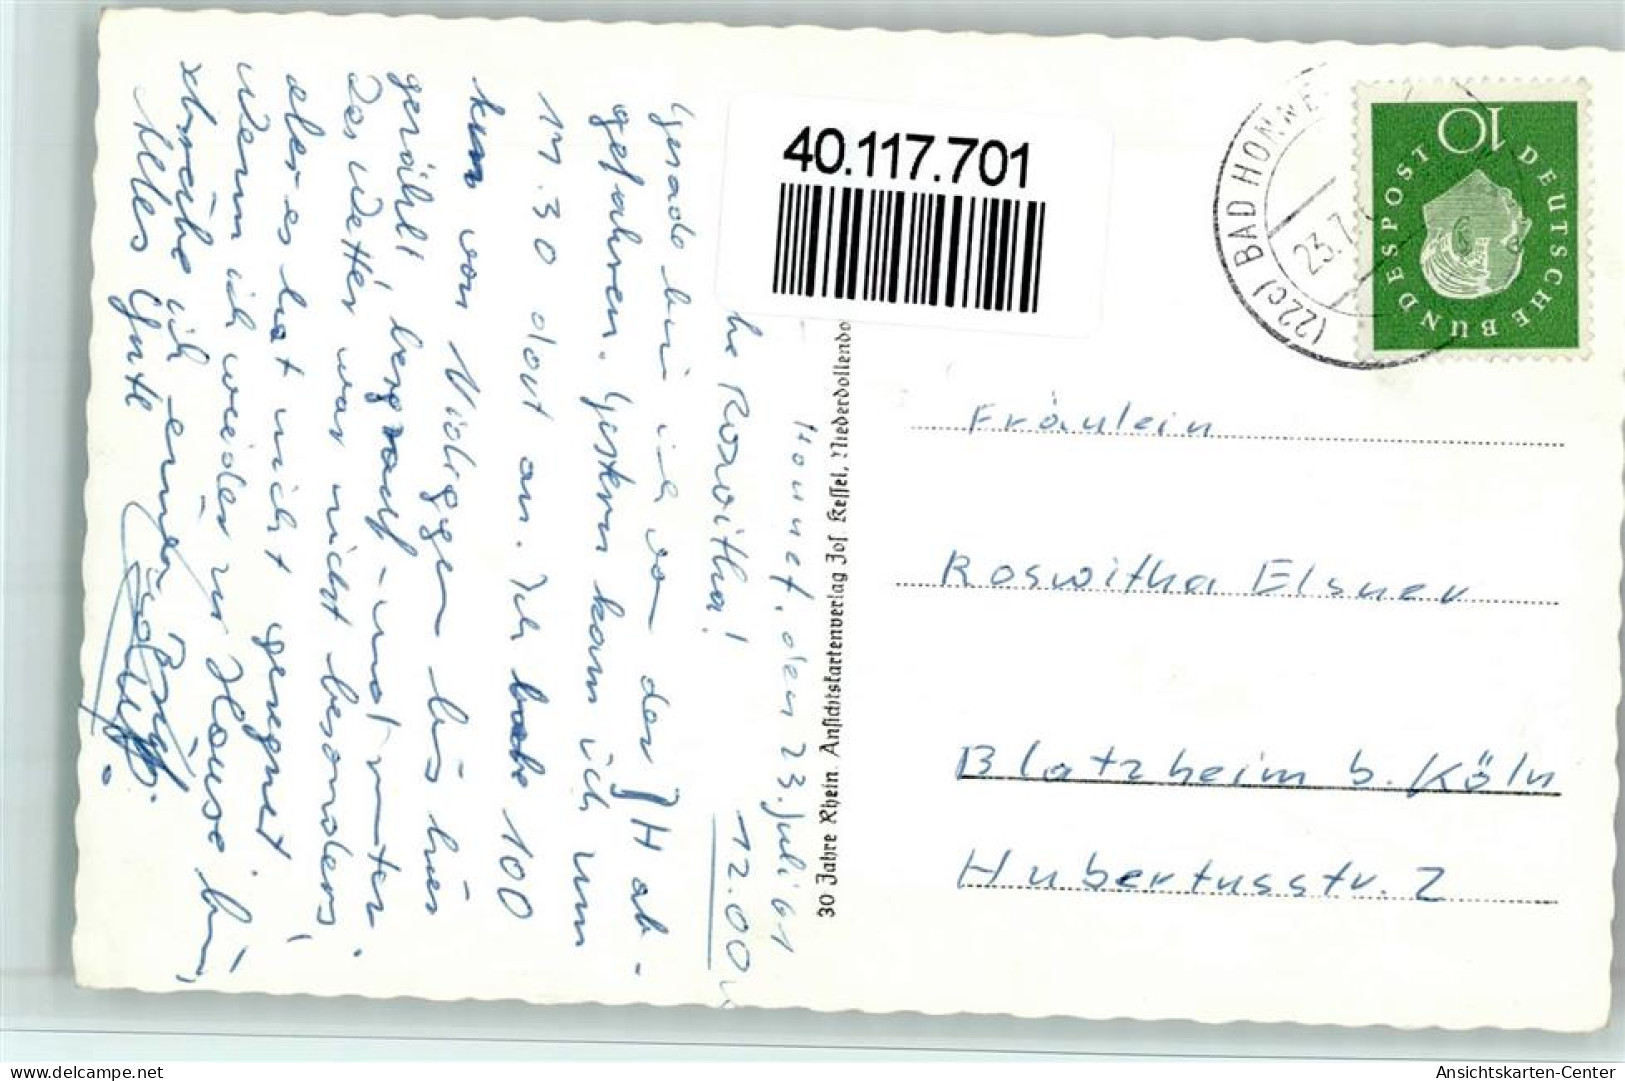 Honnef, den 23. Juli 61
12.00
he Roswitha!
Gerade bin ich von der JH ab-
gefahren. Gestern kam ich um
17.30 dort an. Ich habe 100
km von bis hier
gezählt, bergauf - und runter.
Das Wetter war nicht besonders,
aber es hat nicht geregnet!
Wenn ich wieder zu Hause bin,
schreibe ich einen Brief.
Alles Gute
30 Jahre Rhein. Ansichtskartenverlag Jos. Kessel, Niederdollendo
40.117.701
(22c) BAD HONNE
23.7.
10
DEUTSCHE BUNDESPOST
Fräulein
Roswitha Elsner
Blatzheim b. Köln
Hubertusstr. 2
delcampe.net
Ansichtskarten-Center